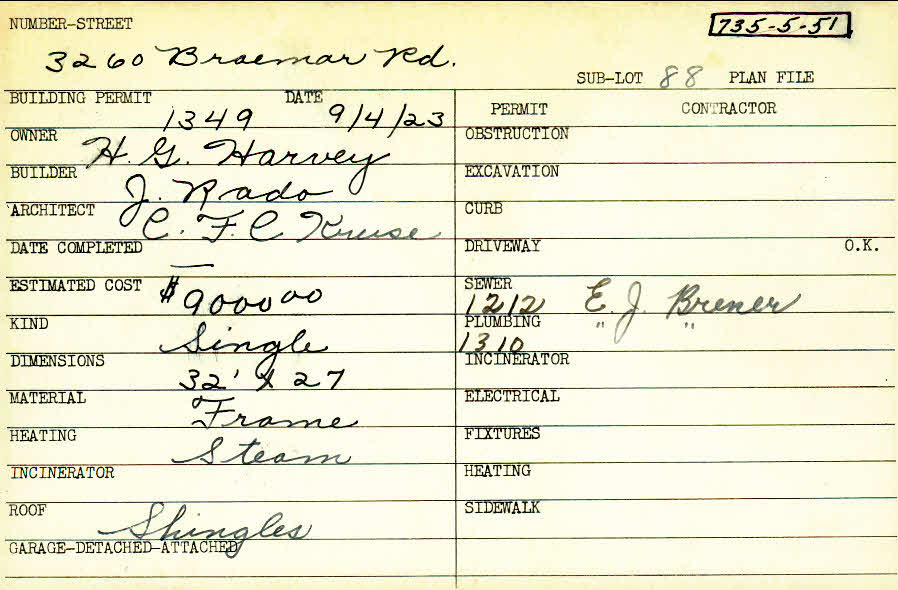 NUMBER-STREET
735-5-51
3260 Braemar Rd.
SUB-LOT 88 PLAN FILE
BUILDING PERMIT 1349 DATE 9/4/23
OWNER H. G. Harvey
BUILDER J. Rado
ARCHITECT C. F. C Kruse
DATE COMPLETED —
ESTIMATED COST $9000 00
KIND Single
DIMENSIONS 32' x 27
MATERIAL Frame
HEATING Steam
INCINERATOR
ROOF Shingles
GARAGE-DETACHED-ATTACHED
PERMIT CONTRACTOR
OBSTRUCTION
EXCAVATION
CURB
DRIVEWAY O.K.
SEWER 1212 E. J. Brener
PLUMBING 1310 " "
INCINERATOR
ELECTRICAL
FIXTURES
HEATING
SIDEWALK